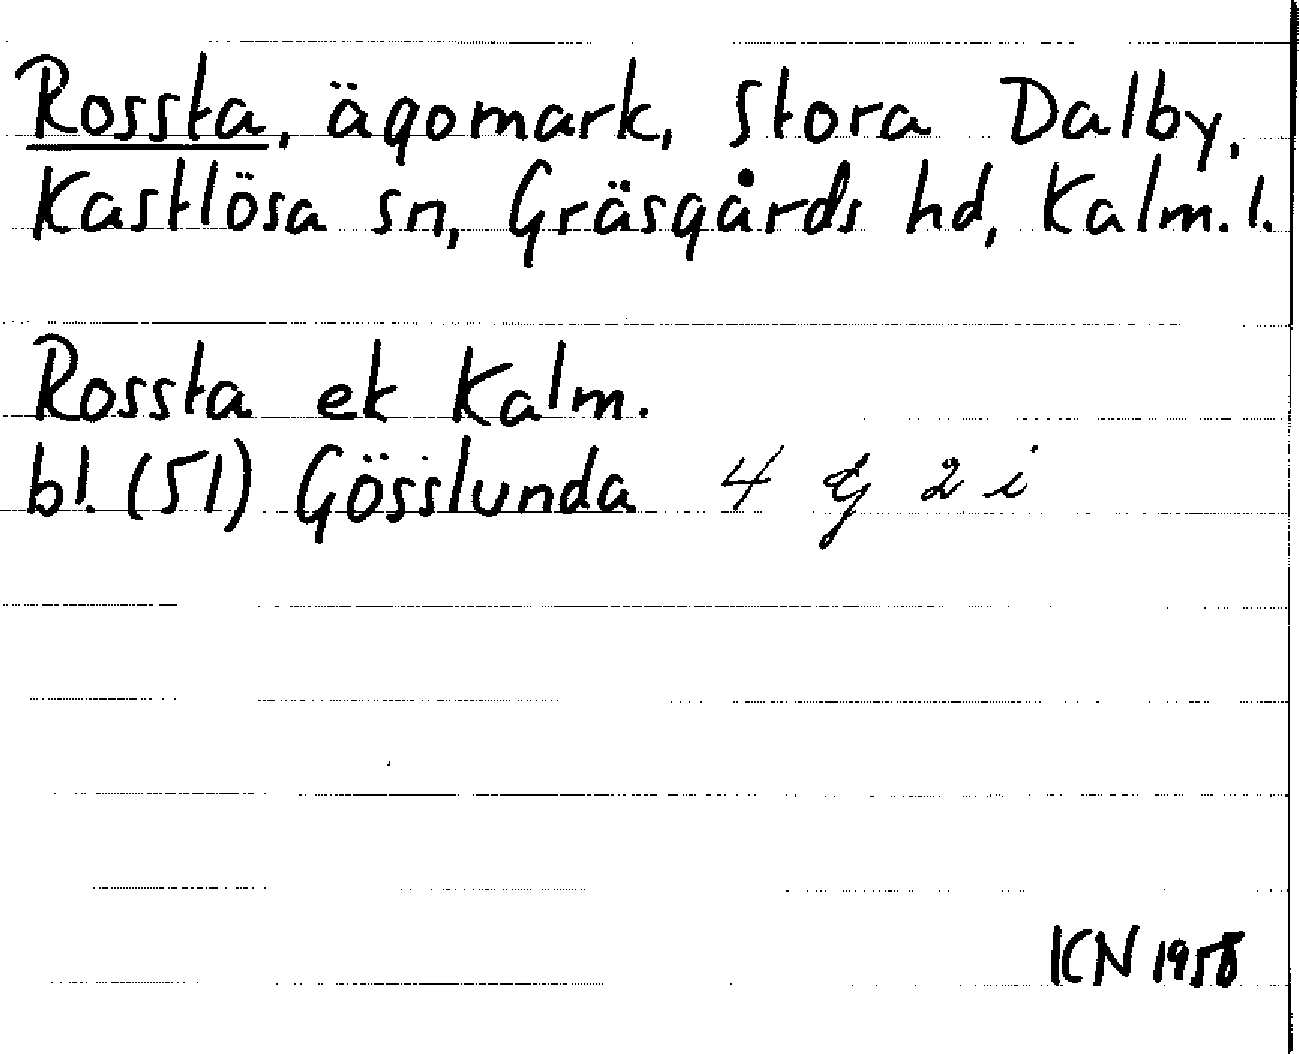 Rossta, ägomark, Stora Dalby,
Kastlösa sn, Gräsgårds hd, Kalm. l.
Rossta ek Kalm.
bl. (51) Gösslunda 4 G 2 i
KN 1958